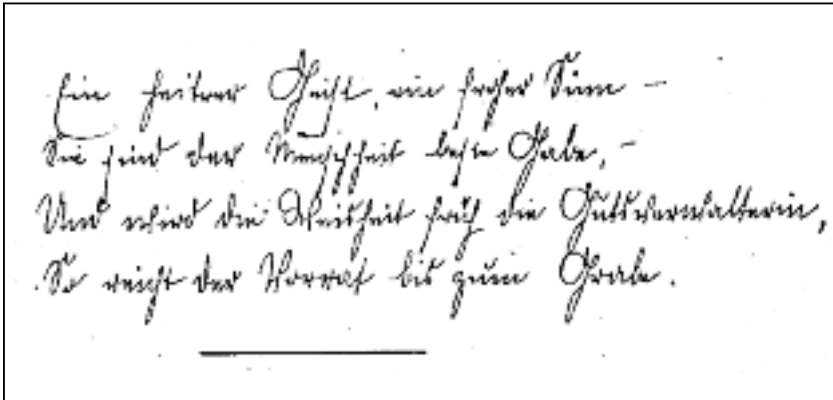 Ein heitrer Geist, ein froher Sinn –
Sie sind der Menschheit beste Gabe, –
Und wird die Weisheit früh die Gutsverwalterin,
So reicht der Vorrat bis zum Grabe.